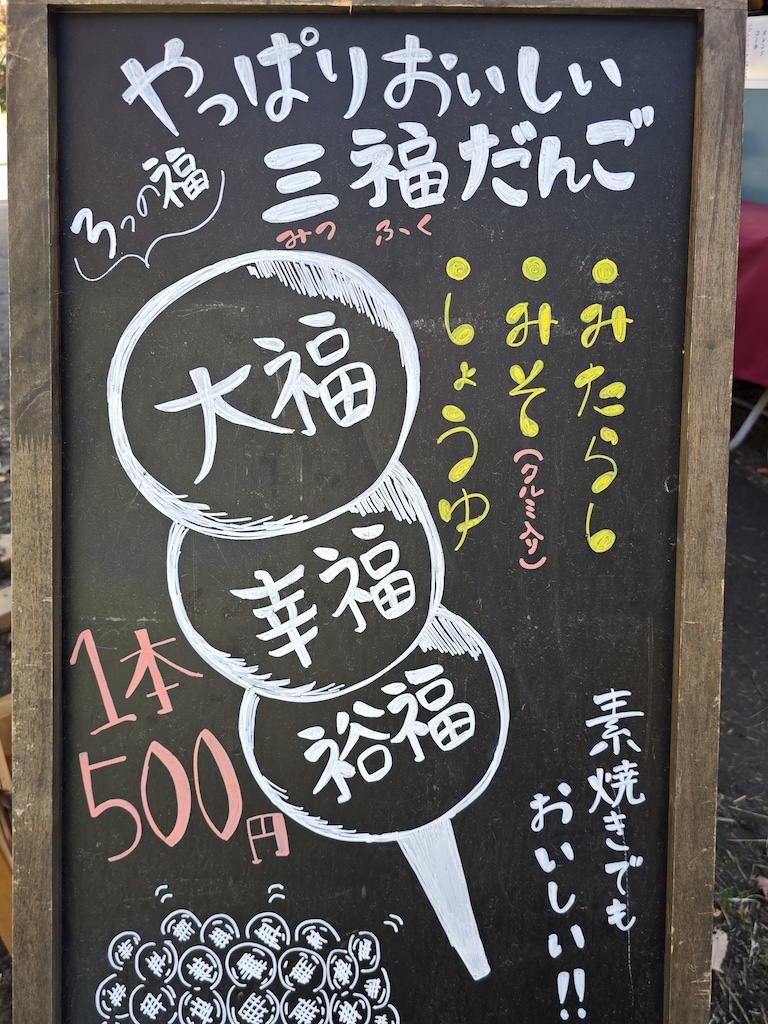 やっぱりおいしい
三福だんご
みつ ふく
3つの福
・みたらし
・みそ(クルミ入り)
・しょうゆ
大福
幸福
裕福
1本
500円
素焼きでも
おいしい!!